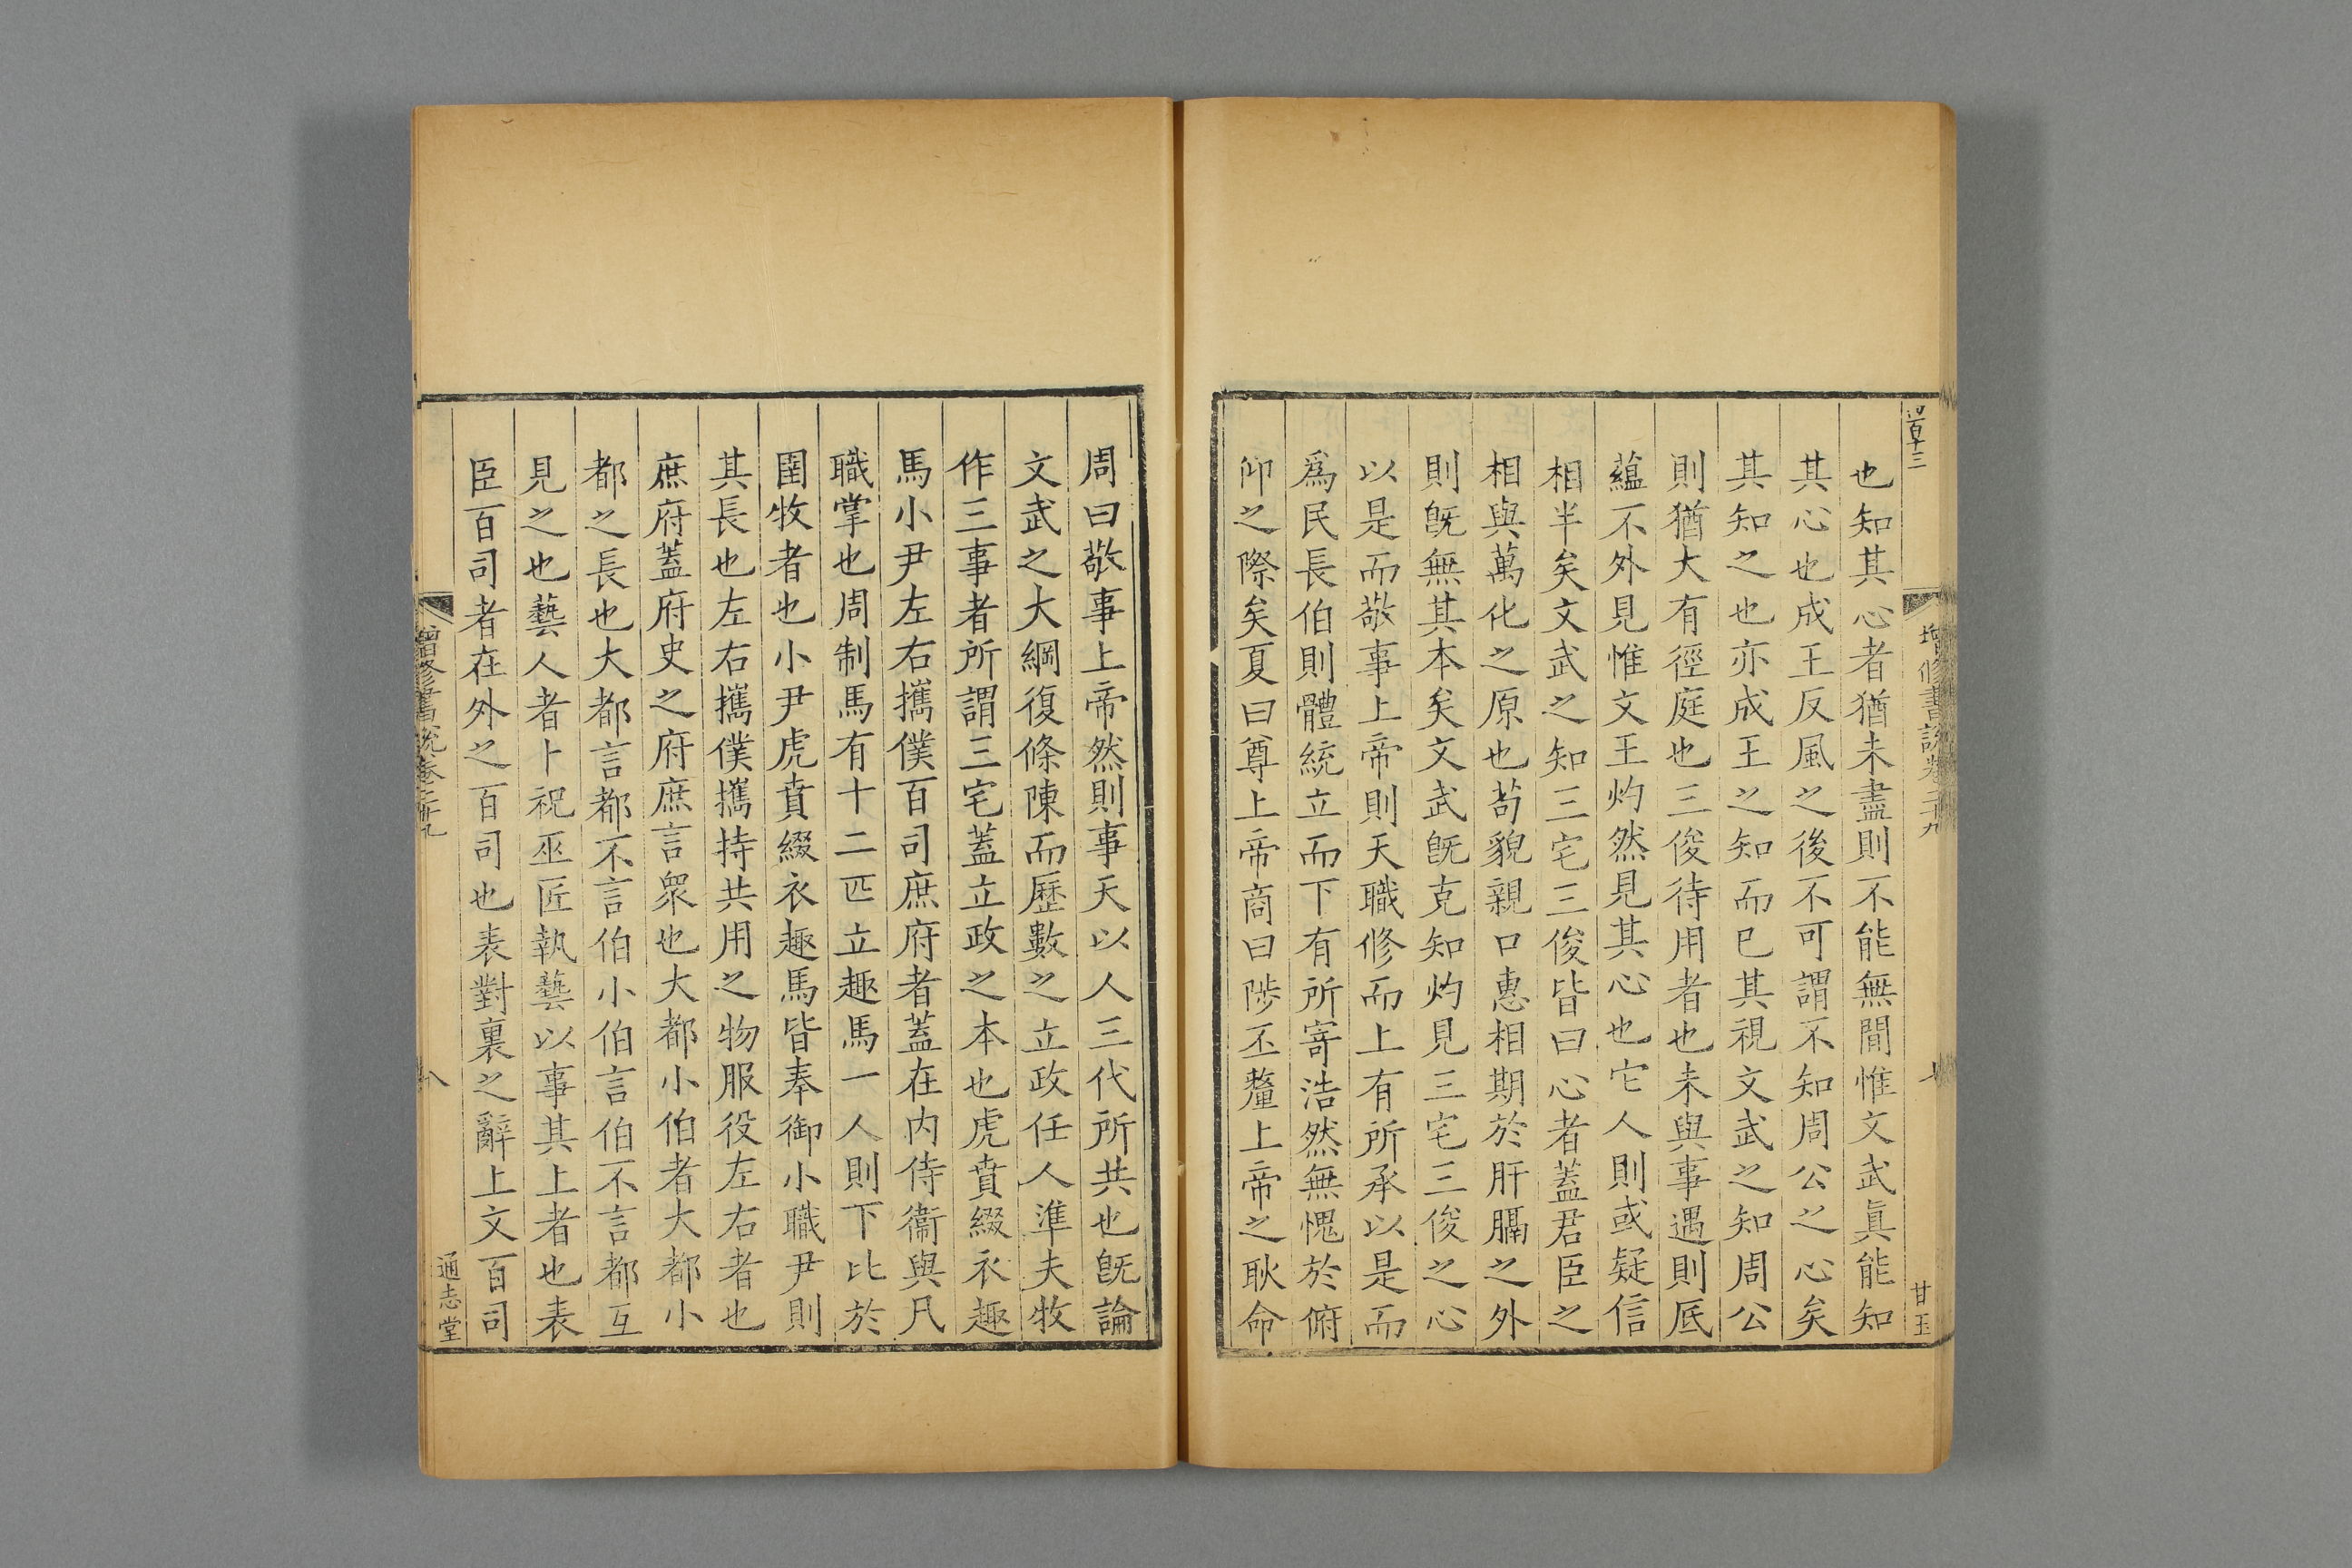 也知其心者猶未盡則不能無間惟文武眞能知
其心也成王反風之後不可謂不知周公之心矣
其知之也亦成王之知而已其視文武之知周公
則猶大有徑庭也三俊待用者也未與事遇則底
蘊不外見惟文王灼然見其心也它人則或疑信
相半矣文武之知三宅三俊皆曰心者蓋君臣之
相與萬化之原也茍貌親口惠相期於肝膈之外
則旣無其本矣文武旣克知灼見三宅三俊之心
以是而敬事上帝則天職修而上有所承以是而
爲民長伯則體統立而下有所寄浩然無愧於俯
仰之際矣夏曰尊上帝商曰陟丕釐上帝之耿命
增修書說卷二十九
甘玉
周曰敬事上帝然則事天以人三代所共也旣論
文武之大綱復條陳而歷數之立政任人準夫牧
作三事者所謂三宅蓋立政之本也虎賁綴衣趣
馬小尹左右攜僕百司庶府者蓋在内侍衞與凡
職掌也周制馬有十二匹立趣馬一人則下比於
圉牧者也小尹虎賁綴衣趣馬皆奉御小職尹則
其長也左右攜僕攜持共用之物服役左右者也
庶府蓋府史之府庶言衆也大都小伯者大都小
都之長也大都言都不言伯小伯言伯不言都互
見之也藝人者卜祝巫匠執藝以事其上者也表
臣百司者在外之百司也表對裏之辭上文百司
增修書說卷之
八
通志堂